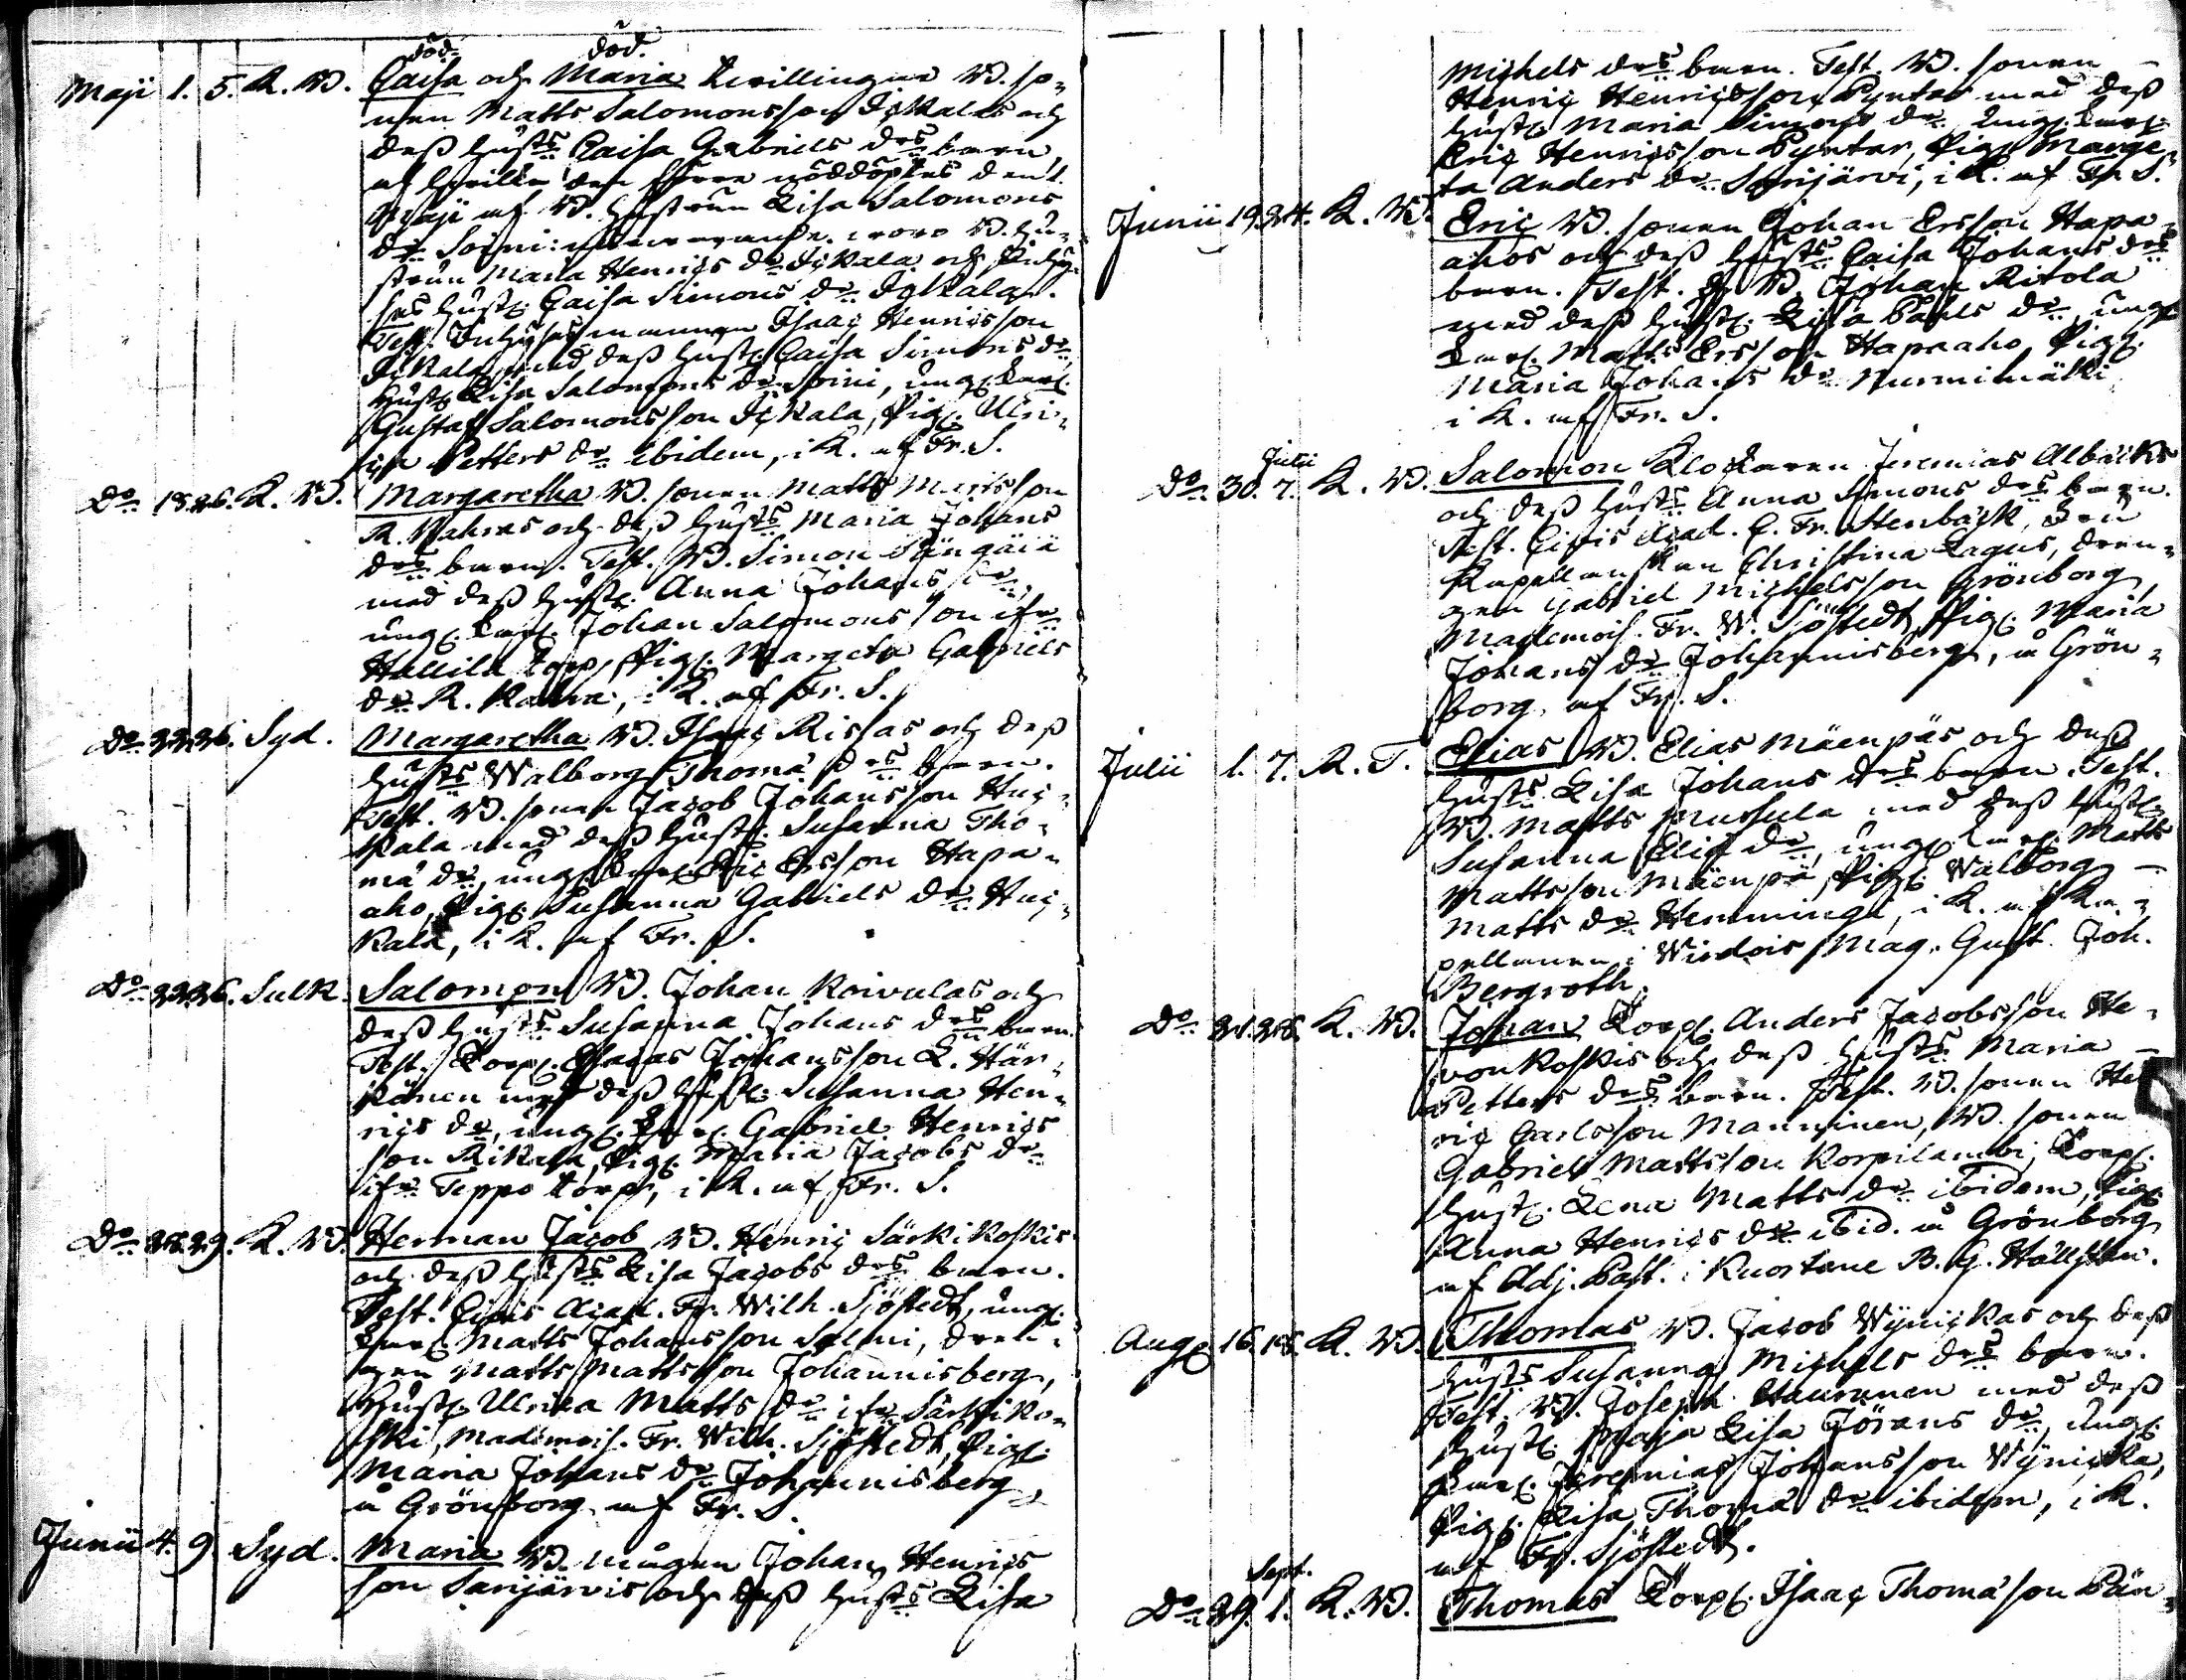 död. död.
Maji 1. 5. K. W. Caisa och Maria Twillingar W. so-
nen Matts Salomonsson Ickalas och
dess hust:s Caisa Gabriels d:rs barn,
af hvilka den förra nöddöptes den 1.
Maji af W. hustrun Lisa Salomons
d:r Soini: närvarande voro W. hu-
strun Maria Henrics d:r Ickala och Inhys-
ses hust. Caisa Simons d:r Ickala.
Test. Inhysesmannen Isaac Henricsson
Ickala med dess hust. Caisa Simons d:r
hust. Lisa Salomons d:r Soini, ung. karl.
Gustaf Salomonsson Ickala, Pig. Ulri-
ca Petters d:r ibidem, i K. af Fr. S.
D:o 18. 26. K. W. Margaretha W. sonen Matts Mattsson
R. Kahras och dess hust:s Maria Johans
d:rs barn. Test. W. Simon Sängäiä
med dess hust. Anna Johans d:r,
ung. karl. Johan Salomonsson ifr.
Hallila torp, Pig. Margeta Gabriels
d:r R. Kahra, i K. af Fr. S.
D:o 22. 26. Syd. Margaretha W. Isaac Rissas och dess
hust:s Walborg Thomæ d:rs barn.
Test. W. sonen Jacob Johansson Huc-
kala med dess hust. Susanna Tho-
mæ d:r, ung. karl. Eric Ersson Hapa-
aho, Pig. Susanna Gabriels d:r Huc-
kala, i K. af Fr. S.
D:o 22. 26. Sulk. Salomon W. Johan Koivulas och
dess hust:s Susanna Johans d:rs barn.
Test. Torp. Esaias Johansson L. Här-
könen med dess hust. Susanna Hen-
rics d:r, ung. karl. Gabriel Henrics
son Rikala, Pig. Maria Jacobs d:r
ifr. Teppo torp, i K. af Fr. S.
D:o 28. 29. K. W. Herman Jacob W. Henric Särkikoskis
och dess hust:s Lisa Jacobs d:rs barn.
Test. Civis Acad. Fr. Wilh. Sjöstedt, ung.
karl. Matts Johansson Salmi, dren-
gen Matts Mattsson Johannisberg,
Hust. Ulrica Matts d:r ifr. Särkiko-
ski, Mademois. Fr. Wilh. Sjöstedt, Pig.
Maria Johans d:r Johannisberg,
å Grönborg af Fr. S.
Junii 4. 9. Syd. Maria W. mågen Johan Henrics
son Sarijärvis och dess hust:s Lisa
Michels d:rs barn. Test. W. sonen
Henric Henricsson Pyntar med dess
hust. Maria Simons d:r, ung. karl.
Eric Henricsson Pyntar, Pig. Marge-
ta Anders d:r Sarijärvi, i K. af Fr. S.
Junii 19. 24. K. W. Eric W. sonen Johan Ersson Hapa-
ahos och dess hust:s Caisa Johans d:rs
barn. Test. W. Johan Ritola
med dess hust. Lisa Pauls d:r, ung.
karl. Matts Ersson Hapaaho, Pig.
Maria Johans d:r Nurmimäki
i K. af Fr. S.
Julii
D:o 30. 7. K. W. Salomon Klockaren Jeremias Albäcks
och dess hust:s Anna Simons d:rs barn.
Test. Civis Acad. C. Fr. Stenbäck, Fru
Kapellanskan Christina Lagus, dren-
gen Gabriel Michelsson Grönborg,
Mademois. Fr. W. Sjöstedt, Pig. Maria
Johans d:r Johannisberg, å Grön-
borg, af Fr. S.
Julii 1. 7. K. T. Elias W. Elias Mäenpäs och dess
hust:s Lisa Johans d:rs barn. Test.
W. Matts med dess hust.
Susanna Eliæ d:r, ung. karl. Matts
Mattsson Mäenpä, Pig. Walborg
Matts d:r Hemminge, i K. af Ka-
pellanen i Wirdois Mag. Gust. Joh.
Bergroth.
D:o 21. 28. K. W. Johan Torp. Anders Jacobsson He-
vonkoskis och dess hust:s Maria
Petters d:rs barn. Test. W. sonen Hen
ric Carlsson Manninen, W. sonen
Gabriel Mattsson Korpilambi, Torp.
hust. Lena Matts d:r ibidem, Pig.
Anna Henrics d:r ibid. å Grönborg
af Adj. Past. i Kuortane B. G. Hällsten.
Aug. 16. 18. K. W. Thomas W. Jacob Wynickas och dess
hust:s Susanna Michels d:rs barn.
Test. W. Joseph Haurunen med dess
hust. Maja Lisa Jörans d:r, ung.
karl. Jeremias Johansson Wynicka,
Pig. Lisa Thomæ d:r ibidem, i K.
af Fr. Sjöstedt.
Sept.
D:o 29. 1. K. W. Thomas Torp. Isaac Thomæson Pän-